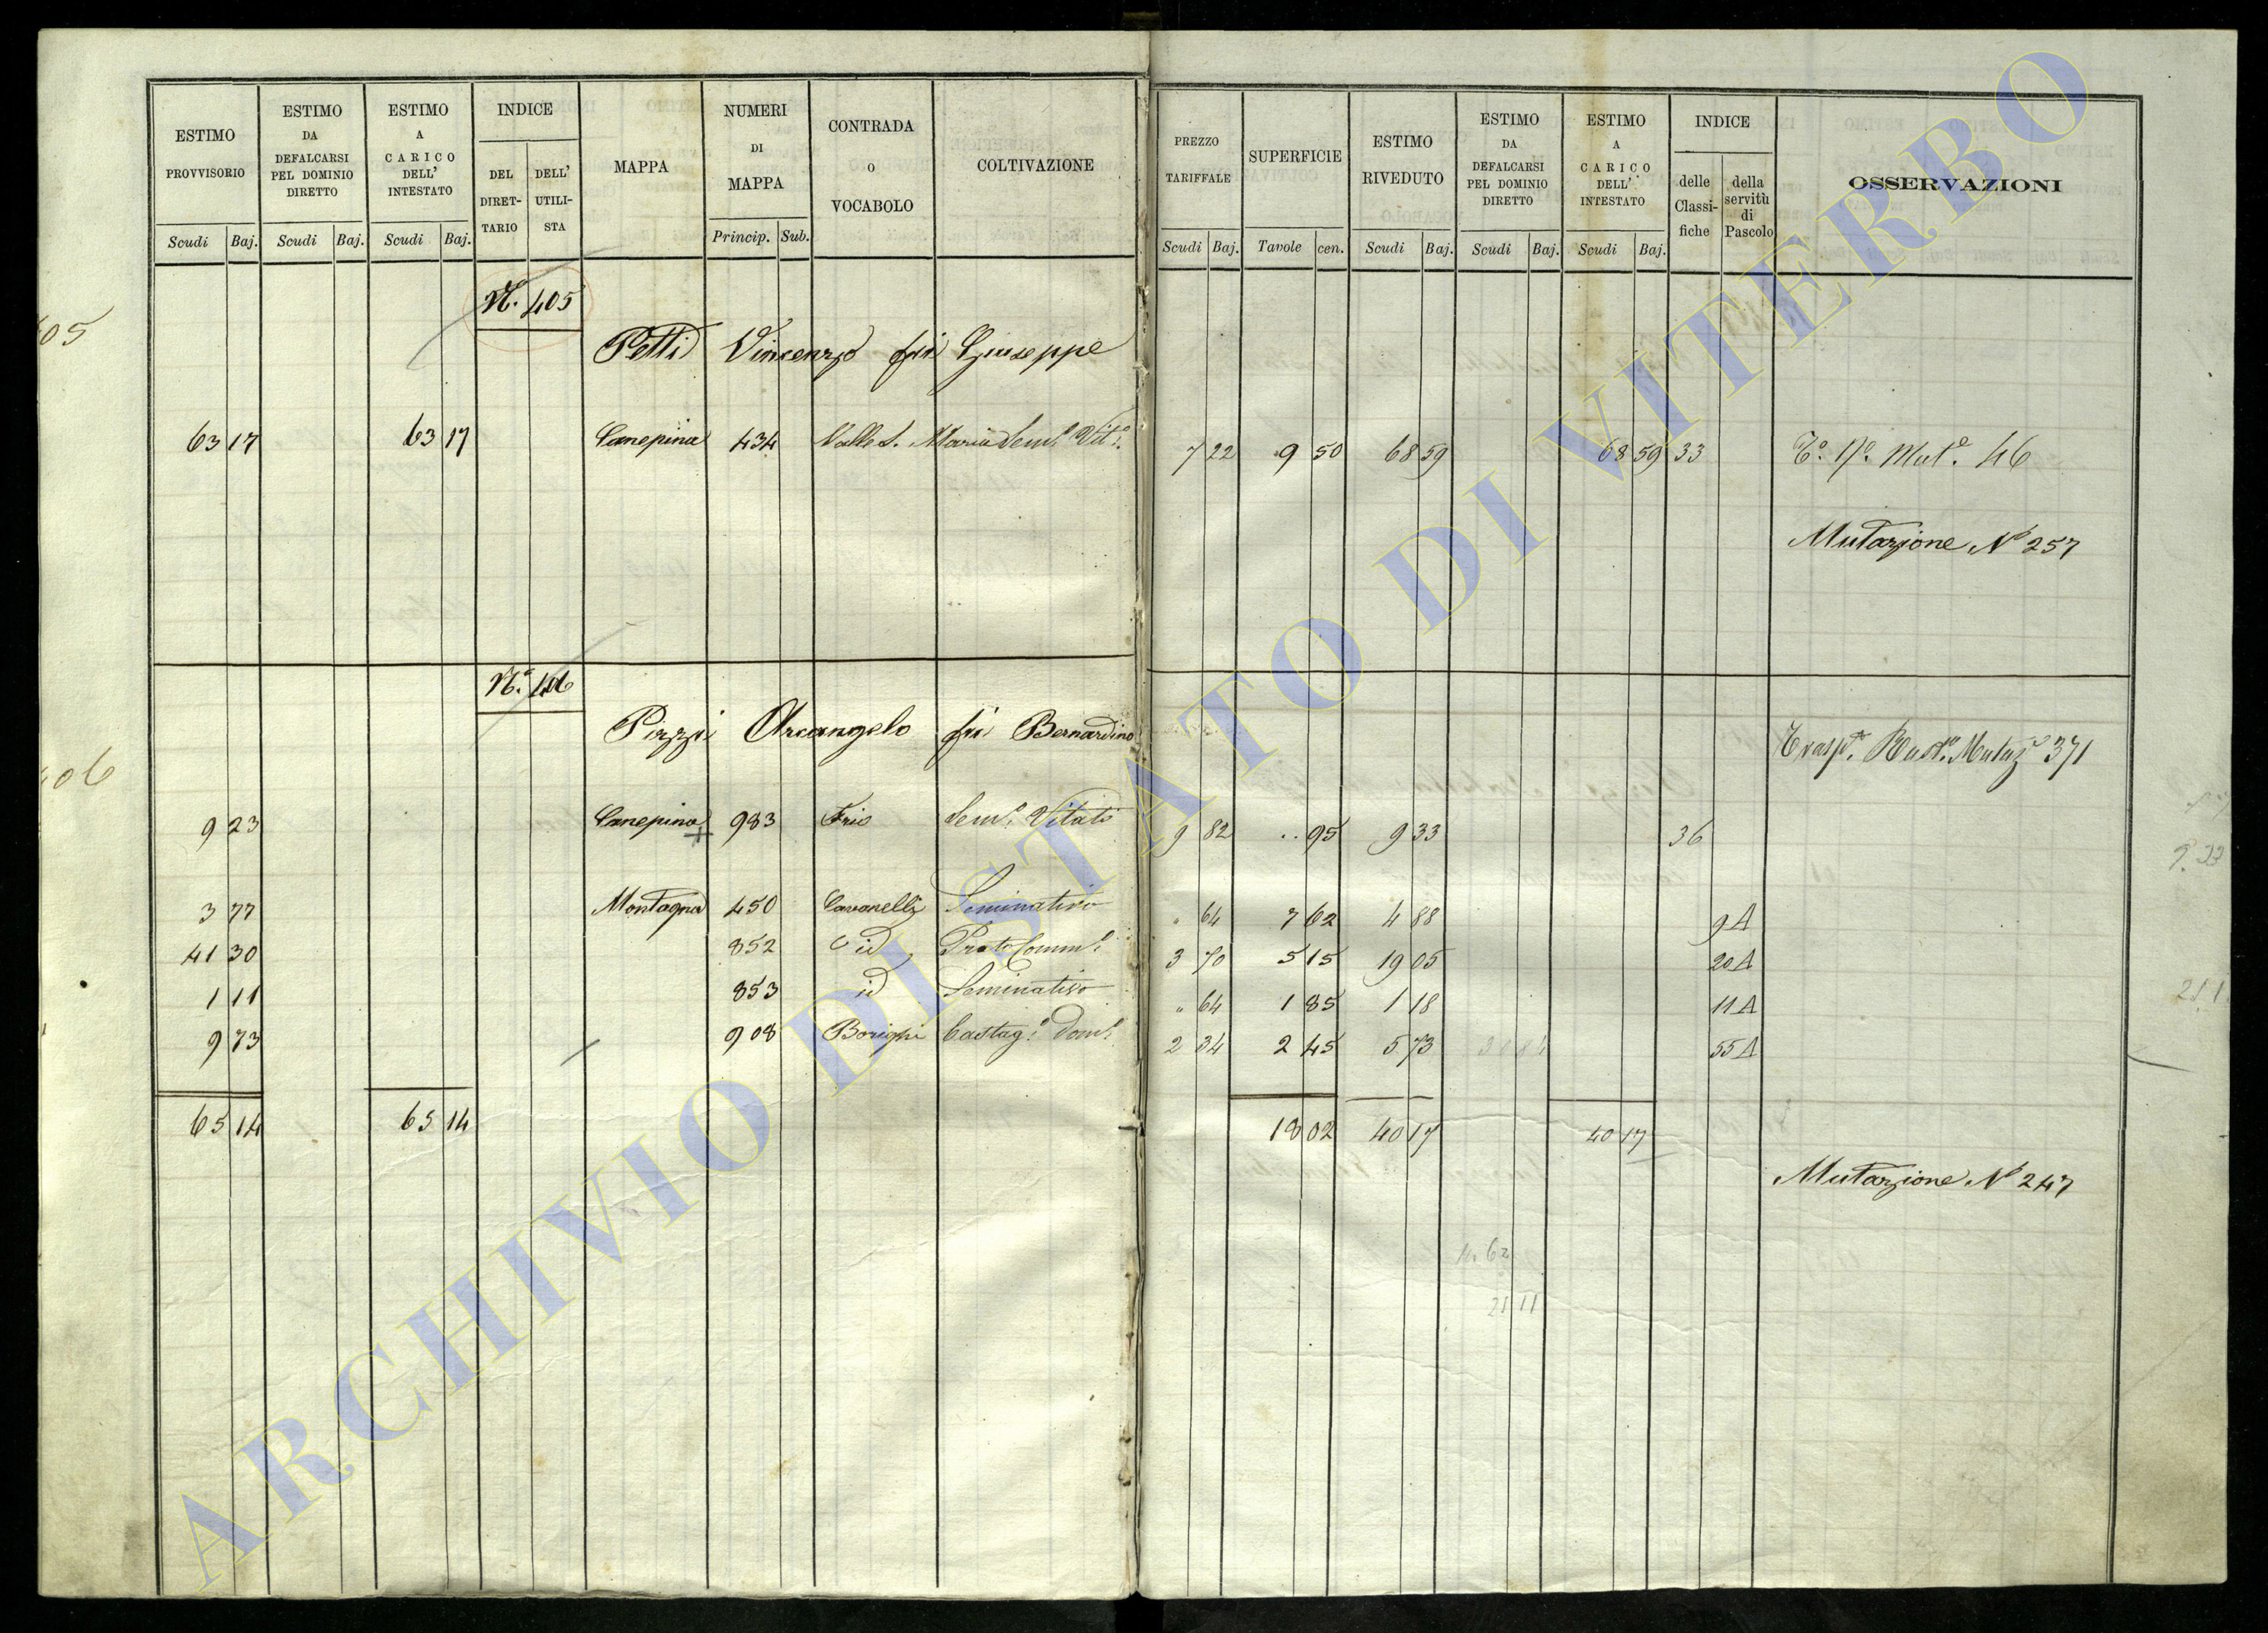 ESTIMO PROVVISORIO Scudi Baj.
ESTIMO DA DEFALCARSI PEL DOMINIO DIRETTO Scudi Baj.
ESTIMO A CARICO DELL' INTESTATO Scudi Baj.
INDICE DEL DIRET-TARIO DELL' UTILI-STA
MAPPA
NUMERI DI MAPPA Princip. Sub.
CONTRADA O VOCABOLO
COLTIVAZIONE
PREZZO TARIFFALE Scudi Baj.
SUPERFICIE Tavole cen.
ESTIMO RIVEDUTO Scudi Baj.
ESTIMO DA DEFALCARSI PEL DOMINIO DIRETTO Scudi Baj.
ESTIMO A CARICO DELL' INTESTATO Scudi Baj.
INDICE delle Classi-fiche della servitù di Pascolo
OSSERVAZIONI
05
N. 405
Petti Vincenzo fu Giuseppe
63 17 63 17 Canepina 434 Valle S. Maria Sem.e Vit.o 7 22 9 50 68 59 68 59 33 46
Mutazione N° 257
N.° 406
Pizzi Arcangelo fu Bernardino
371
06
9 23 Canepina 983 Frio Sem.e Vitato 9 82 .. 95 9 33 36
9.33
3 77 Montagna 450 Cavonelli Seminativo " 64 7 62 4 88 9A
41 30 852 id Prato 3 70 5 15 19 05 20A
1 11 853 id Seminativo " 64 1 85 1 18 11A
9 73 908 Castag.o Dom.e 2 34 2 45 5 73 30 84 55A
65 14 65 14 18 02 40 17 40 17
Mutazione N° 247
62
21 11
ARCHIVIO DI STATO DI VITERBO